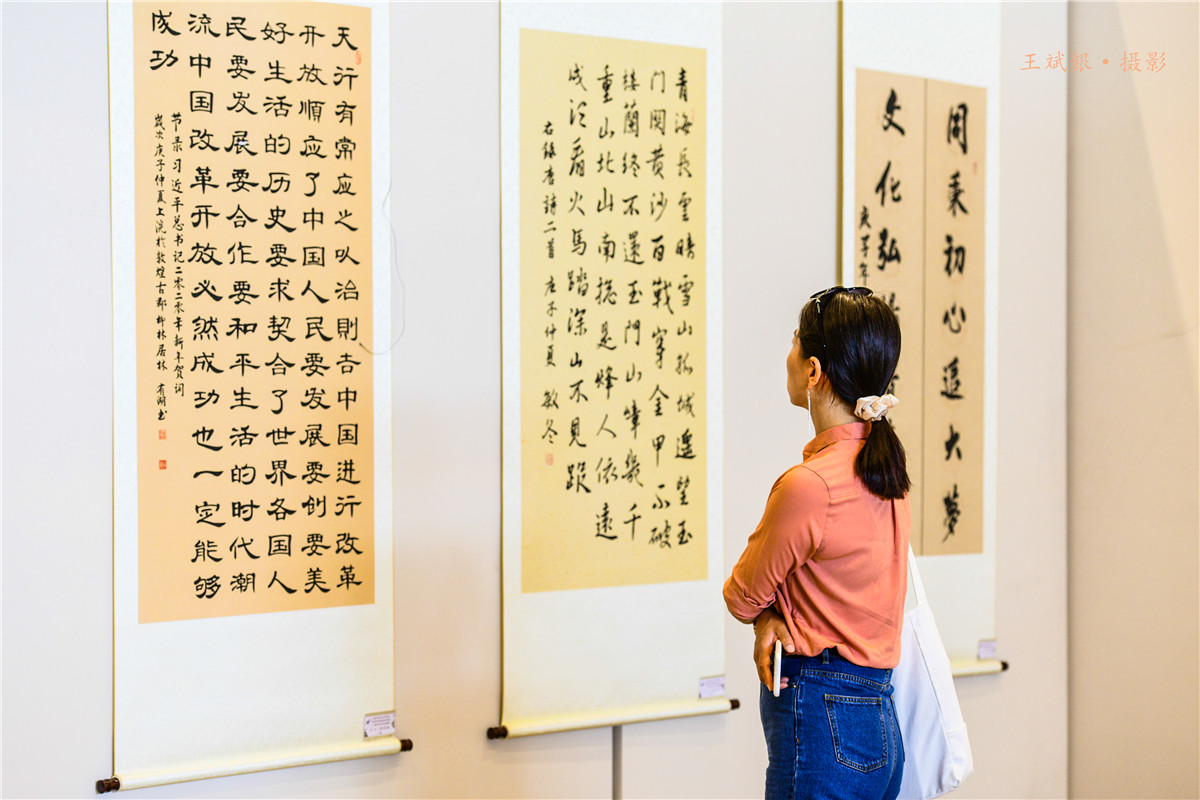 天行有常应之以治則吉中国进行改革
开放順应了中国人民要发展要创要美
好生活的历史要求契合了世界各国人
民要发展要合作要和平生活的时代潮
流中国改革开放必然成功也一定能够
成功
节录习近平总书记二零二零年新年贺词
岁次庚子仲夏上浣於敦煌古郡柳林居林 有湖书
青海長雲暗雪山孤城遥望玉
门関黄沙百戰穿金甲不破
楼蘭终不還玉門山嶂幾千
重山北山南捴是烽人依遠
戍须看火馬踏深山不見蹤
右録唐詩二首 庚子仲夏 敏冬
同秉初心追大夢
文化弘
庚子年
王斌银·摄影